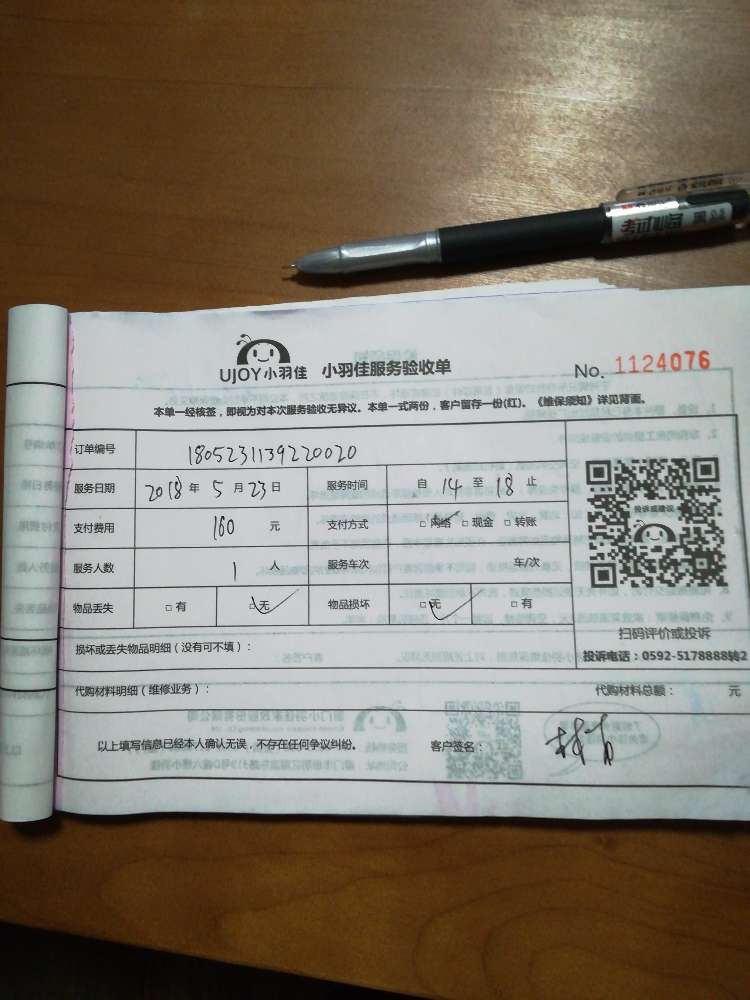 UJOY小羽佳 小羽佳服务验收单 No. 1124076
本单一经核签，即视为对本次服务验收无异议。本单一式两份，客户留存一份(红)。《维保须知》详见背面。
订单编号 1805231139220020
服务日期 2018 年 5 月 23 日 服务时间 自 14 至 18 止
支付费用 160 元 支付方式 □网络 □现金 □转账
服务人数 1 人 服务车次 车/次
物品丢失 □有 □无 物品损坏 □无 □有
投诉或建议
扫码评价或投诉
投诉电话：0592-5178888转2
损坏或丢失物品明细（没有可不填）：
代购材料明细（维修业务）： 代购材料总额： 元
以上填写信息已经本人确认无误，不存在任何争议纠纷。 客户签名：